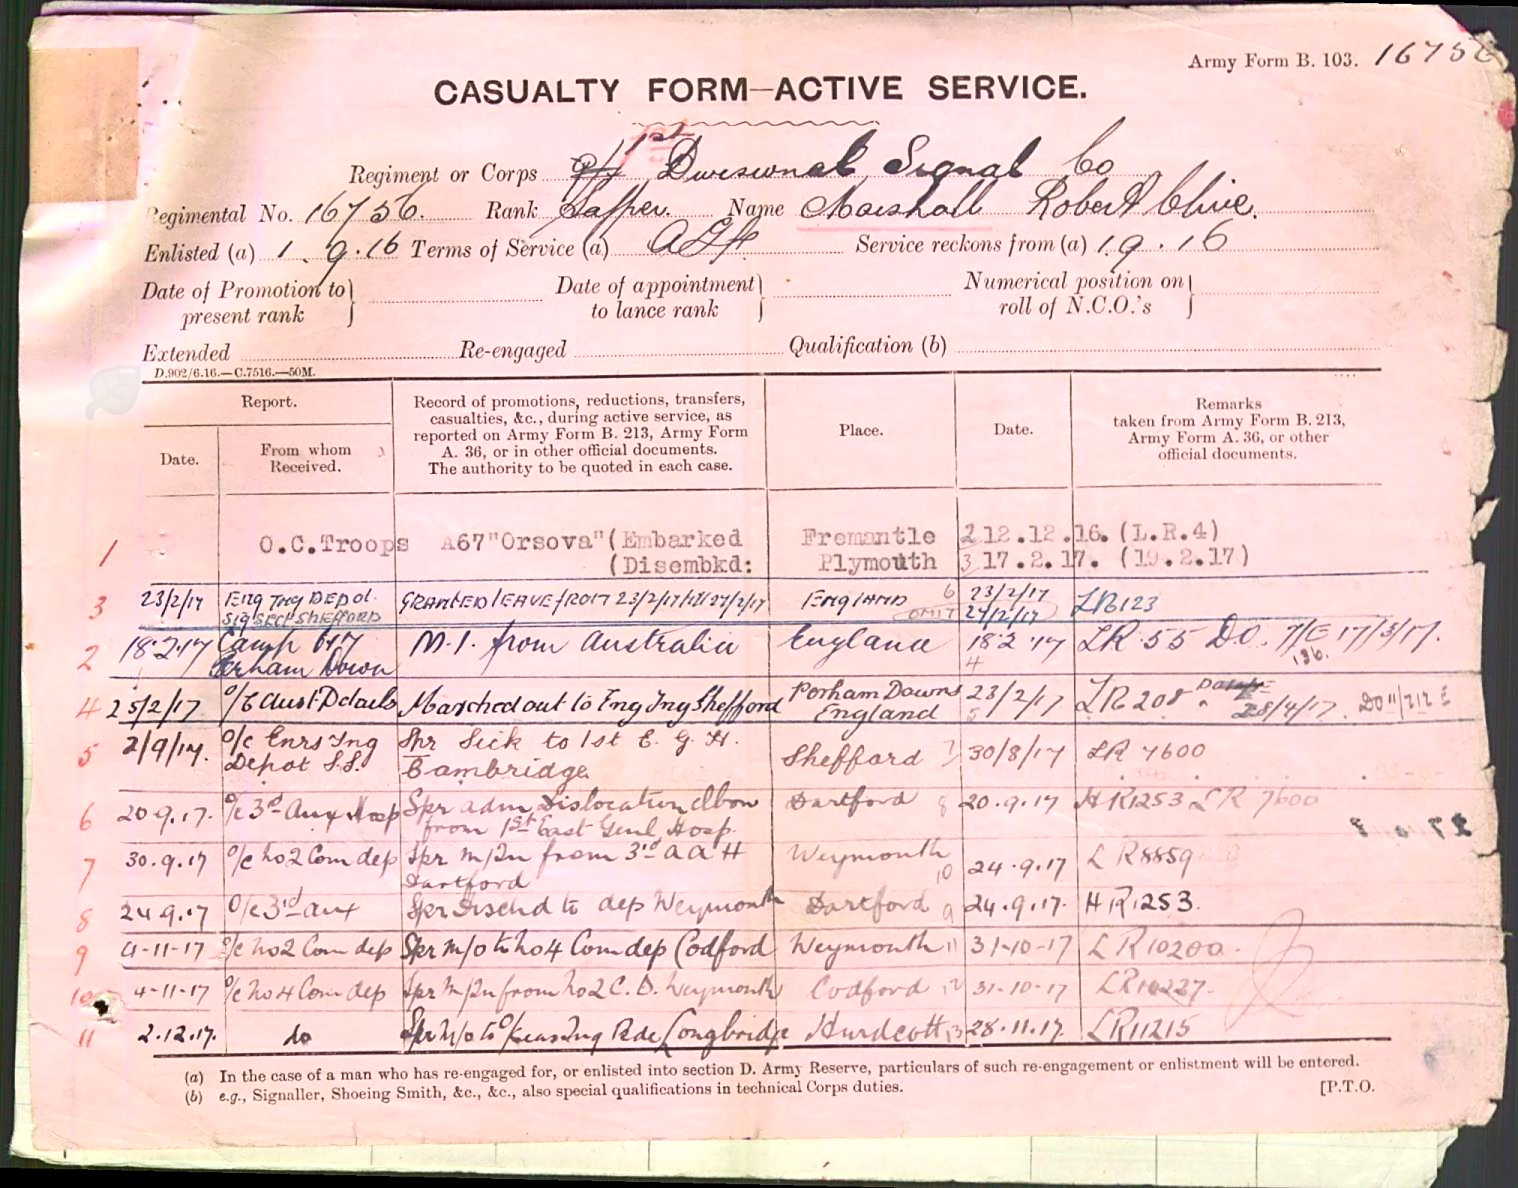 Army Form B. 103. 16756
CASUALTY FORM—ACTIVE SERVICE.
Regiment or Corps 1st Divisional Signal Co
Regimental No. 16756. Rank Sapper. Name Marshall Robert Clive.
Enlisted (a) 1.9.16 Terms of Service (a) Service reckons from (a) 1.9.16
Date of Promotion to present rank } Date of appointment to lance rank } Numerical position on roll of N.C.O.'s }
Extended Re-engaged Qualification (b)
D.902/6.16.—C.7516.—50M.
Report.
Date.
From whom Received.
Record of promotions, reductions, transfers,
casualties, &c., during active service, as
reported on Army Form B. 213, Army Form
A. 36, or in other official documents.
The authority to be quoted in each case.
Place.
Date.
Remarks
taken from Army Form B. 213,
Army Form A. 36, or other
official documents.
1 O.C.Troops A67"Orsova"(Embarked Fremantle 2 12.12.16. (L.R.4)
(Disembkd: Plymouth 3 17.2.17. (19.2.17)
3 23/2/17 Eng Tng Depot. GRANTED LEAVE FROM 23/2/17 27/2/17 ENGLAND 6 23/2/17 LR 123
Sig Sect SHEFFORD OMIT 27/2/17
2 18.2.17 Camp M.I. from Australia England 18 2 17 LR 55 DO. 17/3/17.
Perham Down 4 136.
4 25/2/17 o/c Aust Details Marched out to Eng Tng Shefford Perham Downs England 23/2/17 5 LR 208 28/4/17. DO 11/212 E
5 2/9/17. o/c Enrs Tng Spr Sick to 1st E. G. H. Shefford 7 30/8/17 LR 7600
Depot S.S. Cambridge
6 20.9.17. o/c 3rd Aux Hosp Spr adm Dislocation elbow Dartford 8 20.9.17 HR1253 LR 7600
from 1st East Genl Hosp.
7 30.9.17 o/c No 2 Com dep Spr m/in from 3rd A A H Weymouth 10 24.9.17 LR8859
Dartford
8 24.9.17 O/c 3rd aux Spr Dischd to dep Weymouth Dartford 9 24.9.17. HR1253.
9 4-11-17 o/c No2 Com dep Spr m/o to No 4 Com dep Codford Weymouth 11 31-10-17 LR10200.
10 4-11-17 o/c No 4 Com dep Spr m/in from No 2 C. D. Weymouth Codford 12 31-10-17 LR10227.
11 2.12.17. do Spr m/o to Tng Bde Longbridge Hurdcott 13 28.11.17. LR11215
(a) In the case of a man who has re-engaged for, or enlisted into section D. Army Reserve, particulars of such re-engagement or enlistment will be entered.
(b) e.g., Signaller, Shoeing Smith, &c., &c., also special qualifications in technical Corps duties. [P.T.O.